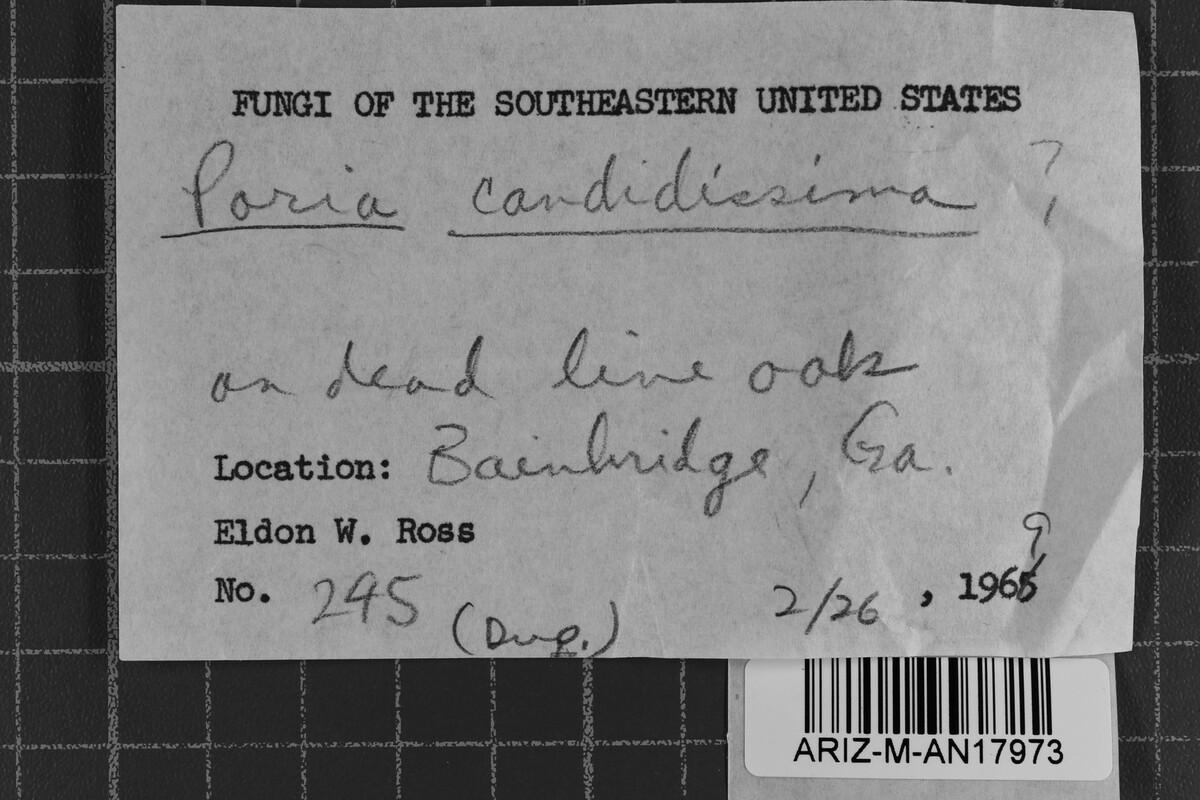 FUNGI OF THE SOUTHEASTERN UNITED STATES
Poria candidissima ?
on dead live oak
Location: Bainbridge, Ga.
Eldon W. Ross
9
No. 245 (Dup.) 2/26, 1965
ARIZ-M-AN17973